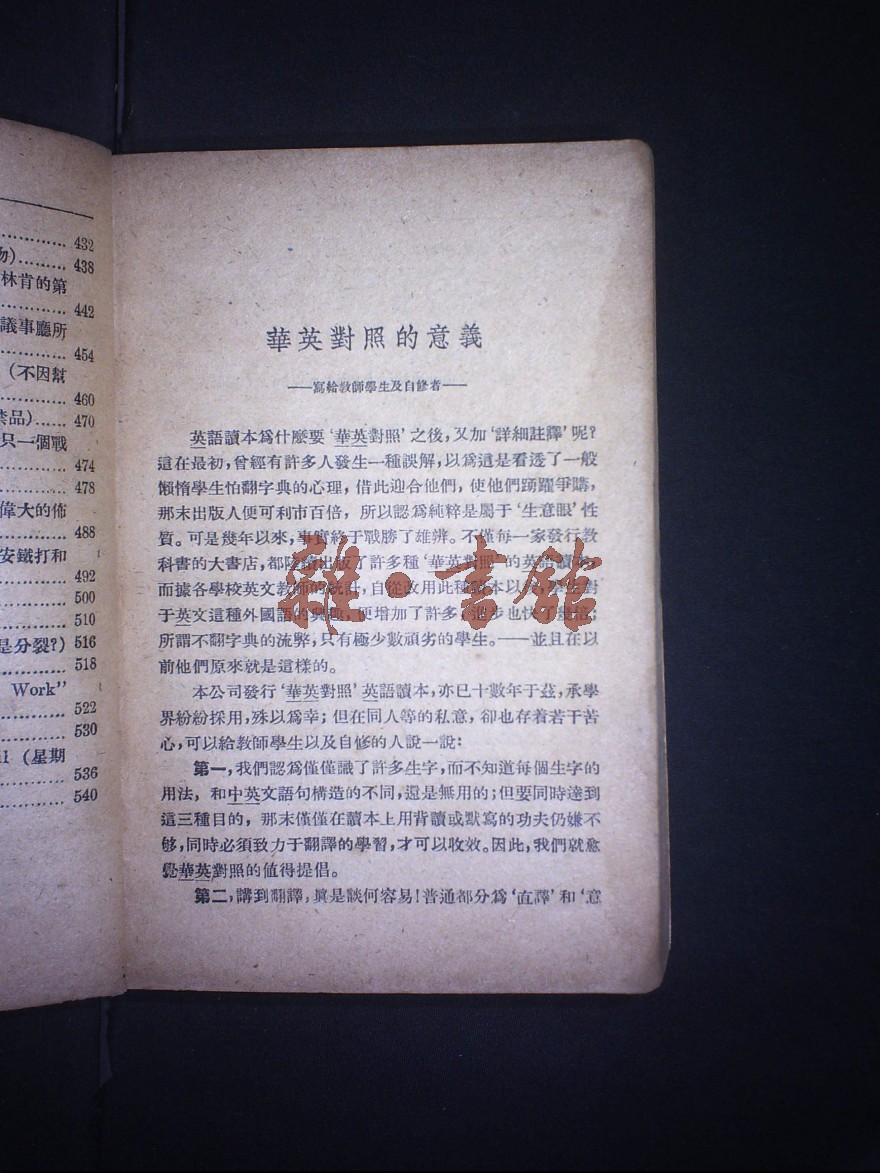 432
物)......... 438
林肯的第
442
議事廳所
454
(不因幫
460
禁品)...... 470
只一個戰
474
478
偉大的佈
488
安鐵打和
492
500
510
是分裂?) 516
518
Work"
522
530
(星期
536
540
華英對照的意義
——寫給教師學生及自修者——
英語讀本爲什麼要‘華英對照’之後,又加‘詳細註譯’呢?
這在最初,曾經有許多人發生一種誤解,以爲這是看透了一般
懶惰學生怕翻字典的心理,借此迎合他們,使他們踴躍爭購,
那末出版人便可利市百倍,所以認爲純粹是屬于‘生意眼’性
質。可是幾年以來,事實終于戰勝了雄辨。不僅每一家發行教
科書的大書店,都陸續出版了許多種‘華英對照’的英語讀本
而據各學校英文教師的統計,自從改用此種讀本以後,學生對
于英文這種外國語的興趣,便增加了許多,進步也快了幾倍;
所謂不翻字典的流弊,只有極少數頑劣的學生。——並且在以
前他們原來就是這樣的。
本公司發行‘華英對照’英語讀本,亦已十數年于茲,承學
界紛紛採用,殊以爲幸;但在同人等的私意,卻也存着若干苦
心,可以給教師學生以及自修的人說一說:
第一,我們認爲僅僅識了許多生字,而不知道每個生字的
用法,和中英文語句構造的不同,還是無用的;但要同時達到
這三種目的,那末僅僅在讀本上用背讀或默寫的功夫仍嫌不
够,同時必須致力于翻譯的學習,才可以收效。因此,我們就愈
覺華英對照的値得提倡。
第二,講到翻譯,眞是談何容易!普通都分爲‘直譯’和‘意
雜·書館